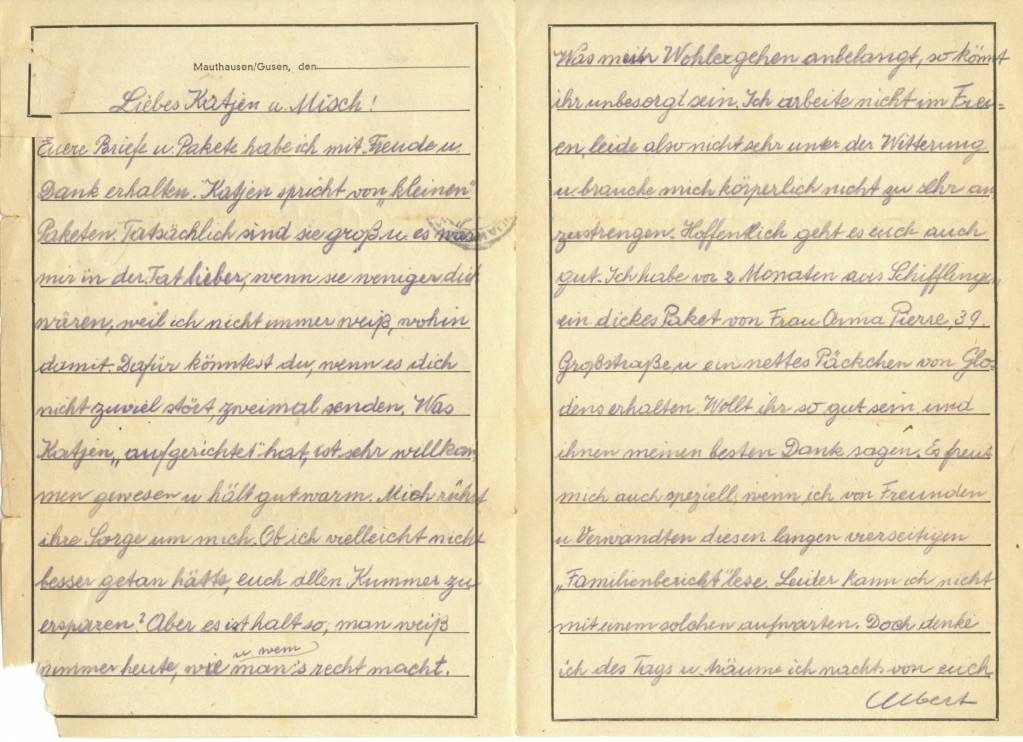 Mauthausen/Gusen, den
Liebes Katjen u. Misch!
Euere Briefe u. Pakete habe ich mit Freude u.
Dank erhalten. Katjen spricht von „kleinen"
Paketen. Tatsächlich sind sie groß u. es wär
mir in der Tat lieber, wenn sie weniger dick
wären, weil ich nicht immer weiß, wohin
damit. Dafür könntest du, wenn es dich
nicht zuviel stört, zweimal senden. Was
Katjen „aufgerichtet" hat, ist sehr willkom
men gewesen u hält gut warm. Mich rührt
ihre Sorge um mich. Ob ich vielleicht nicht
besser getan hätte, euch allen Kummer zu
ersparen? Aber es ist halt so, man weiß
nimmer heute, wie u wem man's recht macht.
Was mein Wohlergehen anbelangt, so könnt
ihr unbesorgt sein. Ich arbeite nicht im Frei=
en, leide also nicht sehr unter der Witterung
u. brauche mich körperlich nicht zu sehr an
zustrengen. Hoffentlich geht es euch auch
gut. Ich habe vor 2 Monaten aus Schifflinge
ein dickes Paket von Frau Anna Pierre, 39,
Großstraße, u ein nettes Päckchen von Glo=
dens erhalten. Wollt ihr so gut sein und
ihnen meinen besten Dank sagen. Es freut
mich auch speziell, wenn ich von Freunden
u Verwandten diesen langen vierseitigen
„Familienbericht" lese. Leider kann ich nicht
mit einem solchen aufwarten. Doch denke
ich des Tags u. träume ich nachts von euch
Albert